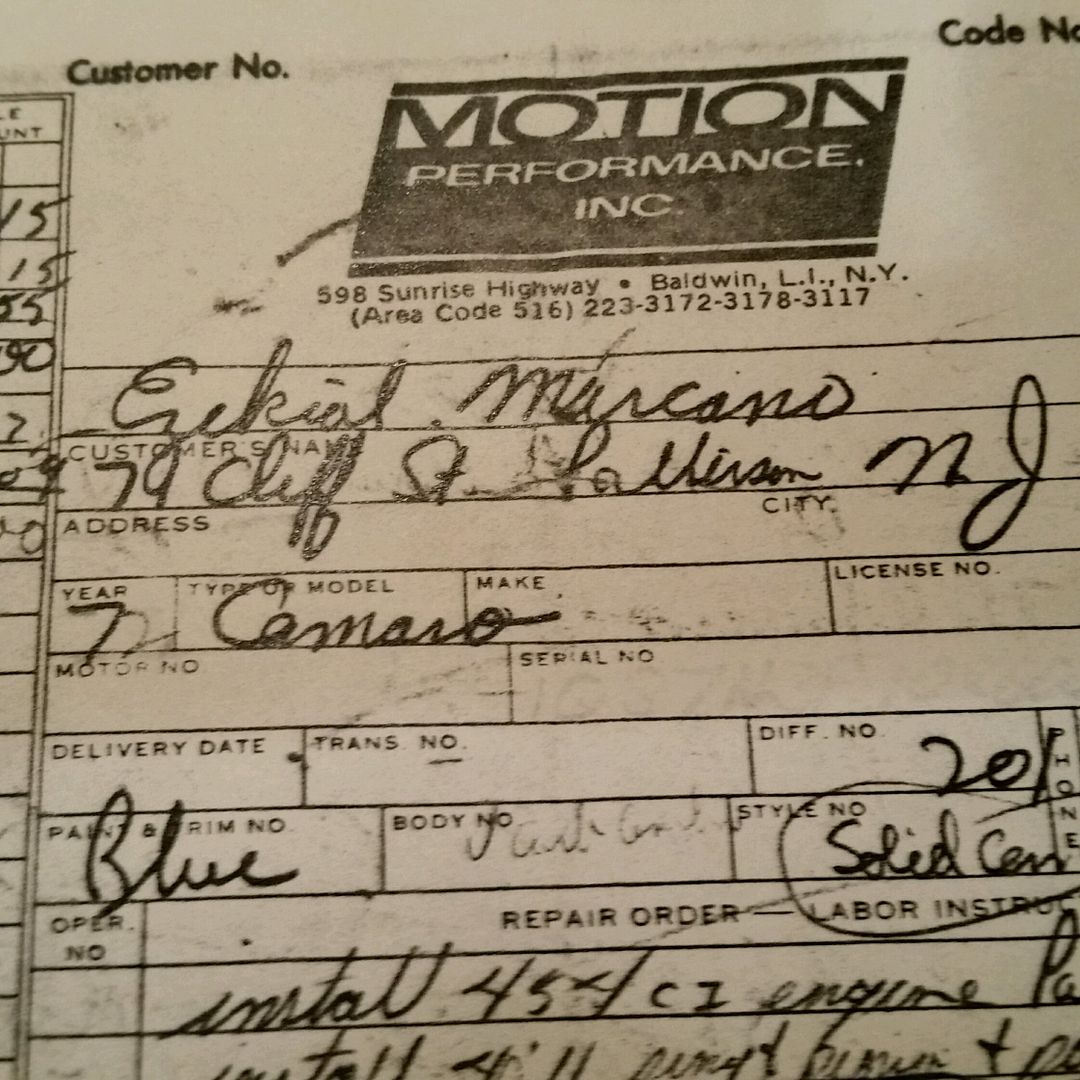 Code No
Customer No.
MOTION
PERFORMANCE,
INC.
598 Sunrise Highway • Baldwin, L.I., N.Y.
(Area Code 516) 223-3172-3178-3117
LE
UNT
15
15
55
90
Ezekial. Marcano
CUSTOMER'S NAME
79 Cliff St. Patterson N J
ADDRESS CITY.
YEAR TYPE OR MODEL MAKE LICENSE NO.
Camaro
MOTOR NO SERIAL NO
DELIVERY DATE TRANS. NO. DIFF. NO.
201
PHONE
PAINT & TRIM NO. BODY NO STYLE NO
Blue Solid
OPER.
NO
REPAIR ORDER — LABOR INSTRUC
install 454 CI engine
install